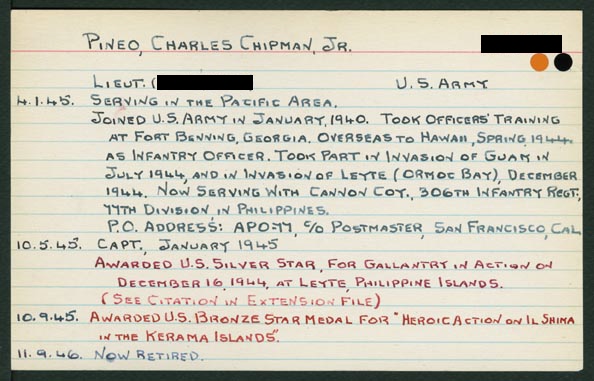 PINEO, CHARLES CHIPMAN, JR.
LIEUT. ( U.S. ARMY
4.1.45. SERVING IN THE PACIFIC AREA.
JOINED U.S. ARMY IN JANUARY, 1940. TOOK OFFICERS' TRAINING
AT FORT BENNING, GEORGIA. OVERSEAS TO HAWAII, SPRING 1944
AS INFANTRY OFFICER. TOOK PART IN INVASION OF GUAM IN
JULY 1944, AND IN INVASION OF LEYTE (ORMOC BAY), DECEMBER
1944. NOW SERVING WITH CANNON COY., 306TH INFANTRY REGT.,
77TH DIVISION IN PHILIPPINES.
P.O. ADDRESS: APO-77, C/O POSTMASTER, SAN FRANCISCO, CAL
10.5.45. CAPT., JANUARY 1945
AWARDED U.S. SILVER STAR, FOR GALLANTRY IN ACTION ON
DECEMBER 16, 1944, AT LEYTE, PHILIPPINE ISLANDS.
(SEE CITATION IN EXTENSION FILE)
10.9.45. AWARDED U.S. BRONZE STAR MEDAL FOR "HEROIC ACTION ON IL SHIMA
IN THE KERAMA ISLANDS".
11.9.46. NOW RETIRED.